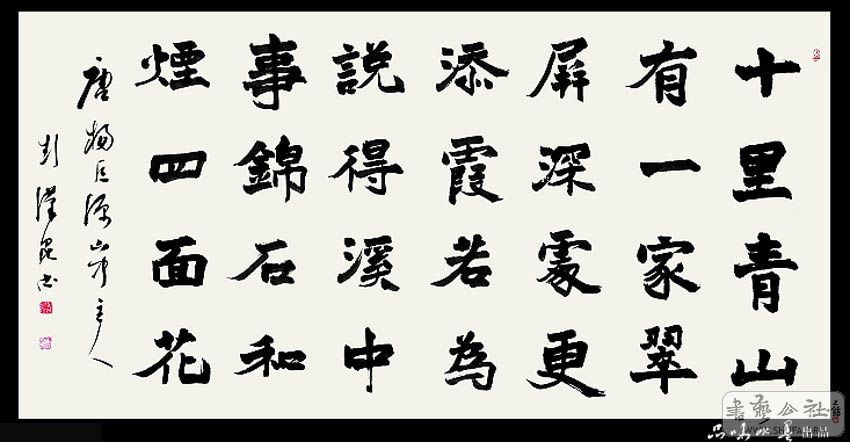 十里青山
有一家翠
屏深處更
添霞若為
説得溪中
事錦石和
煙四面花
唐楊巨源山中主人
彭漢昆书
書藝公社
WWW.SHUFA.RU
出品